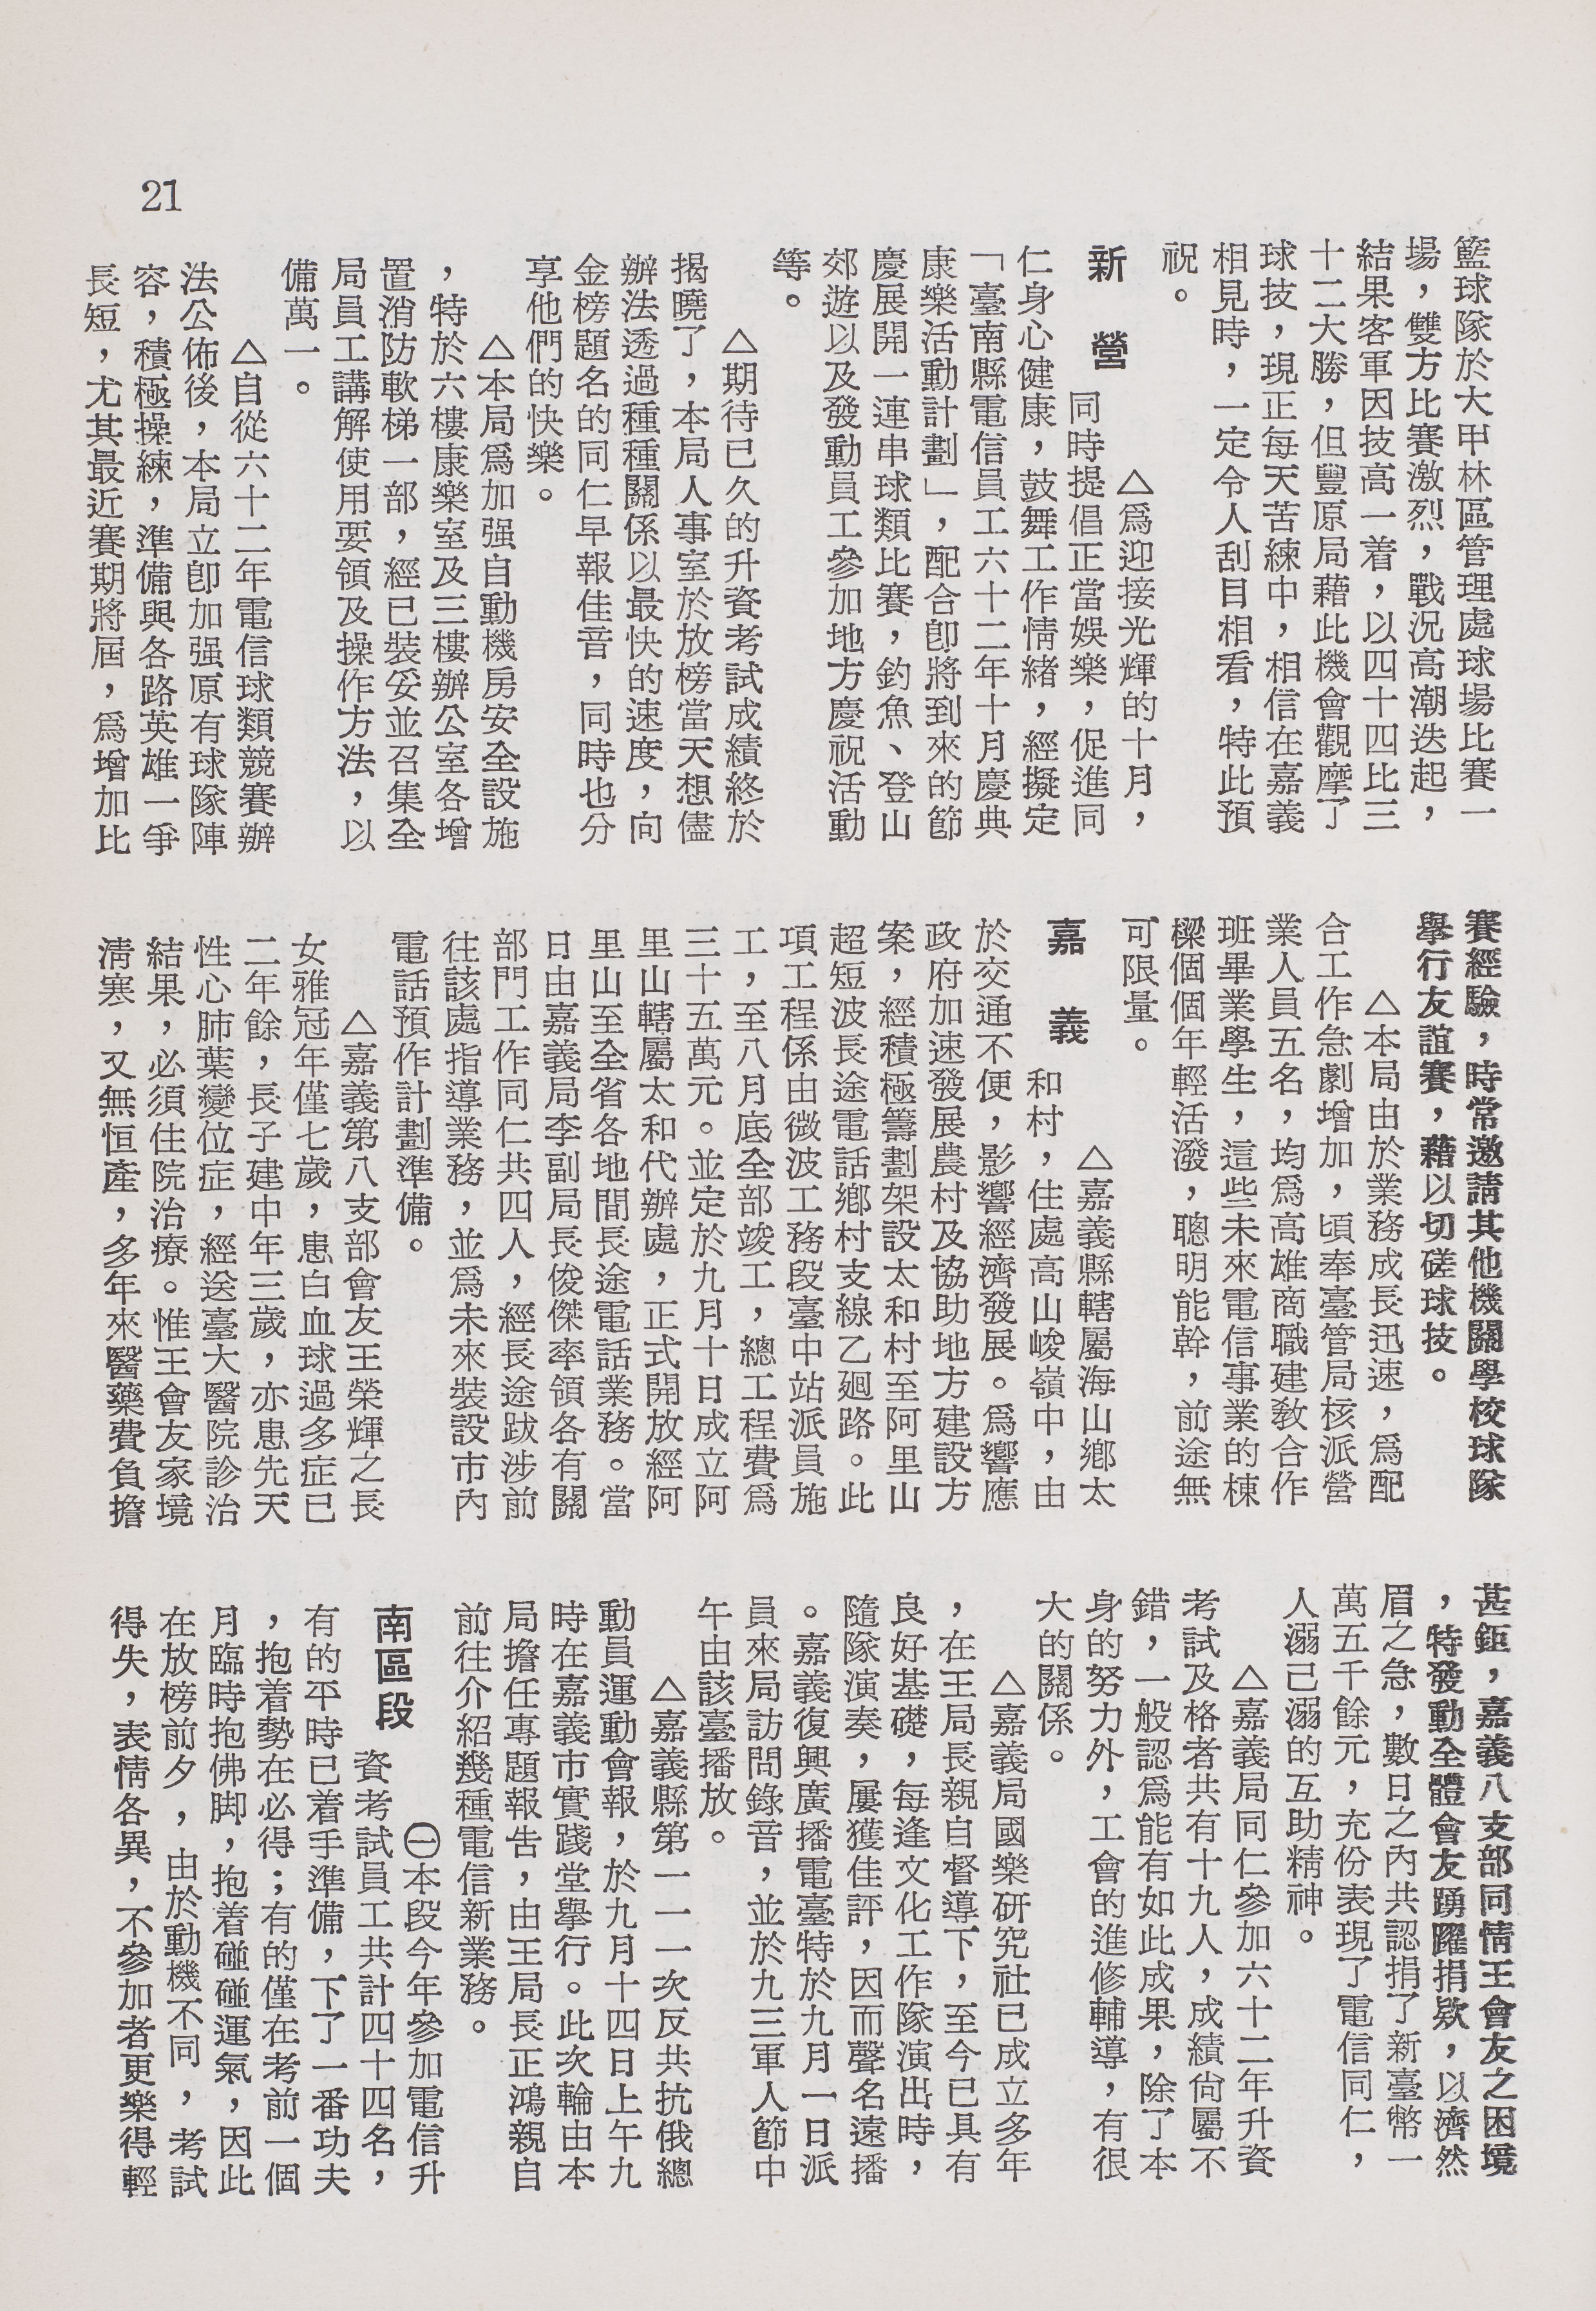 21
籃球隊於大甲林區管理處球場比賽一
場，雙方比賽激烈，戰況高潮迭起，
結果客軍因技高一着，以四十四比三
十二大勝，但豐原局藉此機會觀摩了
球技，現正每天苦練中，相信在嘉義
相見時，一定令人刮目相看，特此預
祝。
新營
△爲迎接光輝的十月，
同時提倡正當娛樂，促進同
仁身心健康，鼓舞工作情緒，經擬定
「臺南縣電信員工六十二年十月慶典
康樂活動計劃」，配合卽將到來的節
慶展開一連串球類比賽，釣魚、登山
郊遊以及發動員工參加地方慶祝活動
等。
△期待已久的升資考試成績終於
揭曉了，本局人事室於放榜當天想儘
辦法透過種種關係以最快的速度，向
金榜題名的同仁早報佳音，同時也分
享他們的快樂。
△本局爲加强自動機房安全設施
，特於六樓康樂室及三樓辦公室各增
置消防軟梯一部，經已裝妥並召集全
局員工講解使用要領及操作方法，以
備萬一。
△自從六十二年電信球類競賽辦
法公佈後，本局立卽加强原有球隊陣
容，積極操練，準備與各路英雄一爭
長短，尤其最近賽期將屆，爲增加比
賽經驗，時常邀請其他機關學校球隊
舉行友誼賽，藉以切磋球技。
△本局由於業務成長迅速，爲配
合工作急劇增加，頃奉臺管局核派營
業人員五名，均爲高雄商職建教合作
班畢業學生，這些未來電信事業的棟
樑個個年輕活潑，聰明能幹，前途無
可限量。
嘉義
△嘉義縣轄屬海山鄉太
和村，住處高山峻嶺中，由
於交通不便，影響經濟發展。爲響應
政府加速發展農村及協助地方建設方
案，經積極籌劃架設太和村至阿里山
超短波長途電話鄉村支線乙廻路。此
項工程係由微波工務段臺中站派員施
工，至八月底全部竣工，總工程費爲
三十五萬元。並定於九月十日成立阿
里山轄屬太和代辦處，正式開放經阿
里山至全省各地間長途電話業務。當
日由嘉義局李副局長俊傑率領各有關
部門工作同仁共四人，經長途跋涉前
往該處指導業務，並爲未來裝設市內
電話預作計劃準備。
△嘉義第八支部會友王榮輝之長
女雅冠年僅七歲，患白血球過多症已
二年餘，長子建中年三歲，亦患先天
性心肺葉變位症，經送臺大醫院診治
結果，必須住院治療。惟王會友家境
淸寒，又無恒產，多年來醫藥費負擔
甚鉅，嘉義八支部同情王會友之困境
，特發動全體會友踴躍捐欵，以濟然
眉之急，數日之內共認捐了新臺幣一
萬五千餘元，充份表現了電信同仁，
人溺己溺的互助精神。
△嘉義局同仁參加六十二年升資
考試及格者共有十九人，成績尙屬不
錯，一般認爲能有如此成果，除了本
身的努力外，工會的進修輔導，有很
大的關係。
△嘉義局國樂研究社已成立多年
，在王局長親自督導下，至今已具有
良好基礎，每逢文化工作隊演出時，
隨隊演奏，屢獲佳評，因而聲名遠播
。嘉義復興廣播電臺特於九月一日派
員來局訪問錄音，並於九三軍人節中
午由該臺播放。
△嘉義縣第一一一次反共抗俄總
動員運動會報，於九月十四日上午九
時在嘉義市實踐堂舉行。此次輪由本
局擔任專題報告，由王局長正鴻親自
前往介紹幾種電信新業務。
南區段
㊀本段今年參加電信升
資考試員工共計四十四名，
有的平時已着手準備，下了一番功夫
，抱着勢在必得；有的僅在考前一個
月臨時抱佛脚，抱着碰碰運氣，因此
在放榜前夕，由於動機不同，考試
得失，表情各異，不參加者更樂得輕